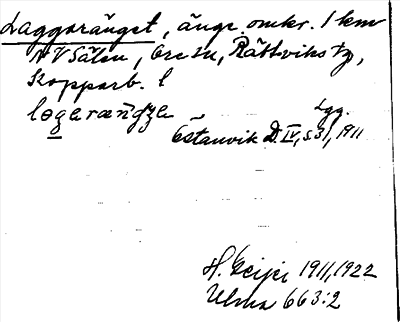 Laggaränget, änge omkr. 1 km
NV Sälen, Ore sn, Rättviks tg,
Kopparb. l
Lgg.
Östanvik D. IV, s. 31, 1911
H. Geijer 1911, 1922
Ulma 663:2